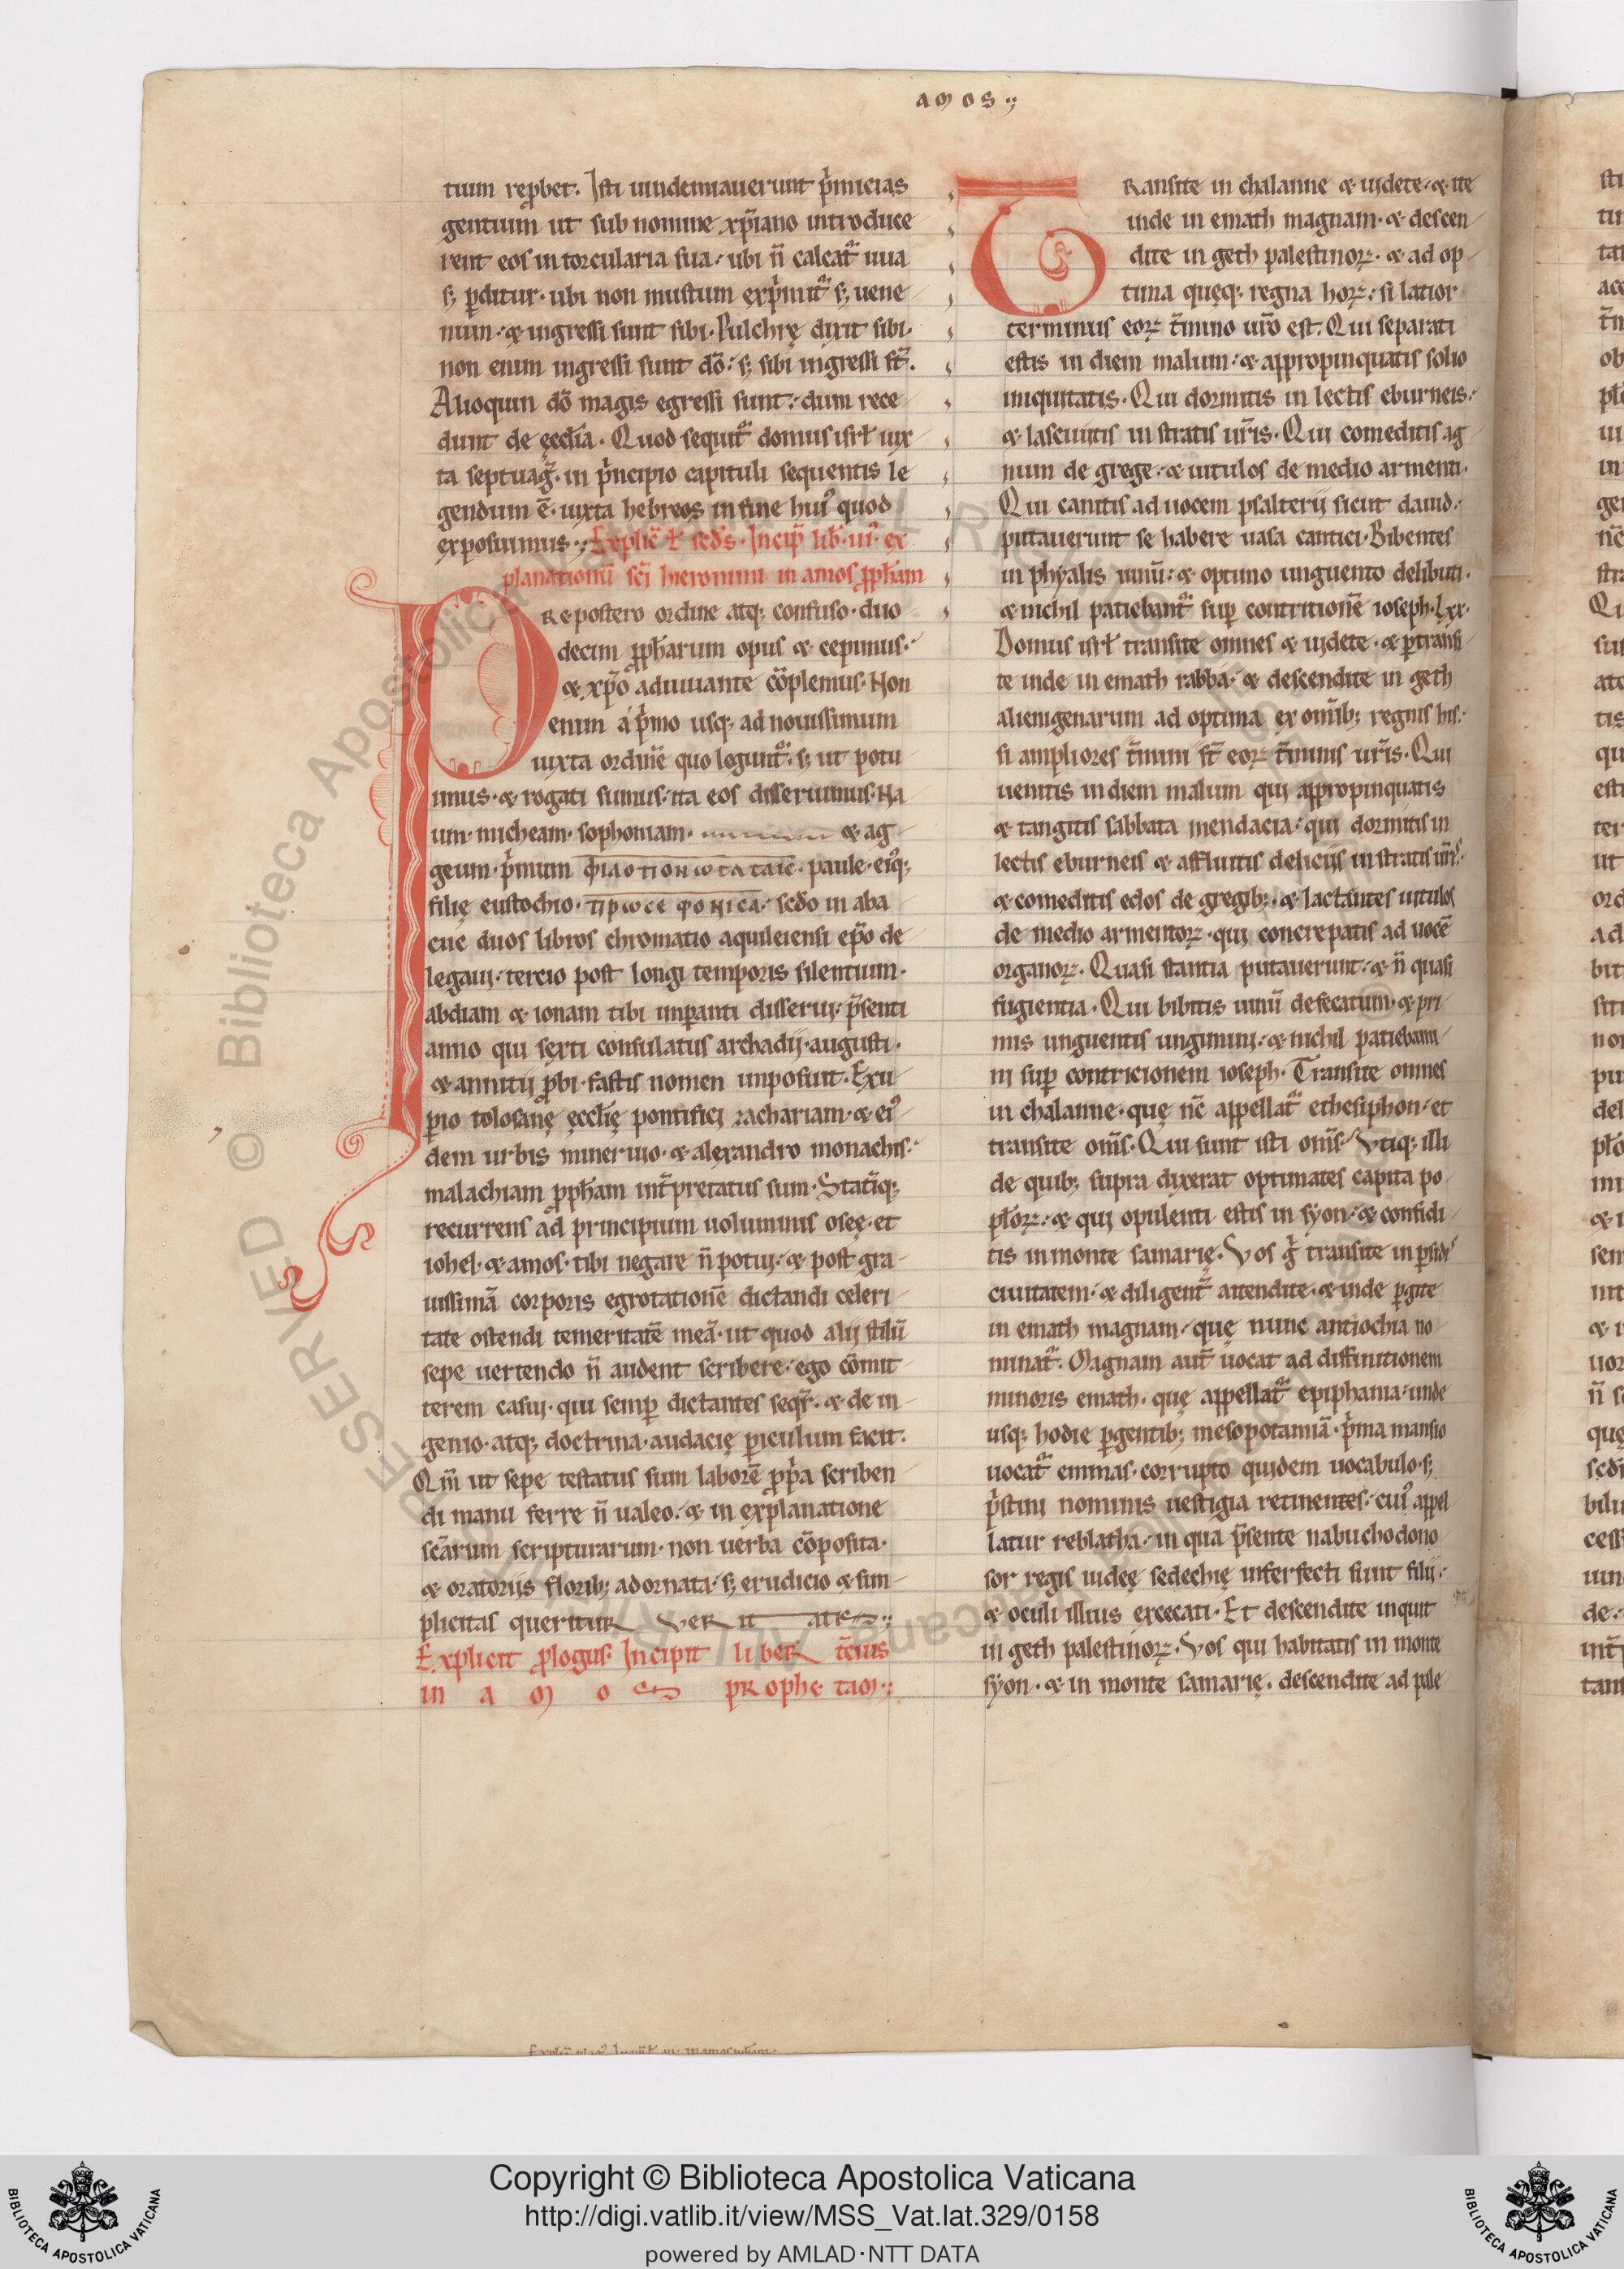 amos
tium rep̄bet. Isti uindemiauerunt p̄micias
gentium ut sub nomine xp̄iano introduce
rent eos in torcularia sua. ubi n̄ calcat̄ uua
s; p̄ditur. ubi non mustum exp̄mit̄ s; uene
num. & ingressi sunt sibi. Pulchrę dixit sibi.
non enim ingressi sunt dō. s; sibi ingressi st̄.
Alioquin dō magis egressi sunt. dum rece
dunt de ęccłia. Quod sequit̄ domus isrł iux
ta septuaḡ. in p̄ncipio capituli sequentis le
gendum ē. iuxta hebreos in fine hui' quod
exposuimus. Explic̄ ł sc̄ds. Incip̄ lib̄. ui'. ex
planationū sc̄i hieronimi in amos p̄ph̄am
Repostero ordine atq; confuso. duo
decim p̄ph̄arum opus & cepimus.
& xp̄o adiuuante cōplemus. Non
enim á p̄mo usq; ad nouissimum
iuxta ordinē quo legunt̄. s; ut potu
imus. & rogati sumus. ita eos disseruimus. Na
um. micheam. sophoniam. & ag
geum. p̄mum φιλοτιονωταταις. paule. eiq;
filię eustochio. πρωσεφονησα. sc̄do in aba
cuc duos libros chromatio aquileiensi ep̄o de
legaui. tercio post longi temporis silentium.
abdiam & ionam tibi imp̄anti disserui. p̄senti
anno qui sexti consulatus archadij. augusti.
& annitij p̄bi. fastis nomen imposuit. Exu
p̄io tolosanę ęcclię pontifici zachariam. & ei'
dem urbis mineruio. & alexandro monachis.
malachiam p̄ph̄am int̄pretatus sum. Statiq;
recurrens ad principium uoluminis oseę. et
iohel. & amos. tibi negare n̄ potui. & post gra
uissimā corporis egrotationē dictandi celeri
tate ostendi temeritatē meā. ut quod alij stilū
sepe uertendo n̄ audent scribere. ego cōmit
terem casui. qui semp̄ dictantes seqr̄. & de in
genio. atq; doctrina. audacię p̄iculum facit.
Qm̄ ut sepe testatus sum laborē p̄p̄a scriben
di manu ferre n̄ ualeo. & in explanatione
sc̄arum scripturarum. non uerba cōposita.
& oratorijs florib; adornata. s; erudicio & sim
plicitas queritur ueritatis
Explicit p̄logus. Incipit liber t̄cius
in amos prophetam.
Transite in chalanne & uidete. & ite
inde in emath magnam. & descen
dite in geth palestinoꝝ. & ad op
tima quęq; regna hoꝝ. si latior
terminus eoꝝ t̄mino ur̄o est. Qui separati
estis in diem malum. & appropinquatis solio
iniquitatis. Qui dormitis in lectis eburneis.
& lasciuitis in stratis ur̄is. Qui comeditis ag
num de grege. & uitulos de medio armenti.
Qui canitis ad uocem psalterij sicut dauid.
putauerunt se habere uasa cantici. Bibentes
in phyalis uinū. & optimo unguento delibuti.
& nichil patiebant̄ sup̄ contritionē ioseph. Lxx.
Domus isrł transite omnes & uidete. & p̄transi
te inde in emath rabba. & descendite in geth
alienigenarum ad optima ex omīb; regnis his.
si ampliores t̄mini st̄ eoꝝ t̄minis ur̄is. Qui
uenitis in diem malum qui appropinquatis
& tangitis sabbata mendacia. qui dormitis in
lectis eburneis & affluitis delicijs in stratis ur̄is.
& comeditis edos de gregib;. & lactantes uitulos
de medio armentoꝝ. qui concrepatis ad uocē
organoꝝ. Quasi stantia putauerunt. & n̄ quasi
fugientia. Qui bibitis uinū defecatum. & pri
mis unguentis ungimini. & nichil patiebami
ni sup̄ contricionem ioseph. Transite omnes
in chalanne. quę nc̄ appellat̄ ethesiphon. et
transite om̄s. Qui sunt isti om̄s. Vtiq; illi
de quib; supra dixerat optimates capita po
płoꝝ. & qui opulenti estis in syon. & confidi
tis in monte samarię. Vos g̊ transite in p̄sidis
ciuitatem. & diligent̄ attendite. & inde p̄gite
in emath magnam. quę nunc antiochia no
minat̄. Magnam aut̄ uocat ad diffinitionem
minoris emath. quę appellat̄ epiphania. unde
usq; hodie p̄gentib; mesopotamiā. p̄ma mansio
uocat̄ emmas. corrupto quidem uocabulo. s;
p̄stini nominis uestigia retinentes. cui' appel
latur reblatha. in qua p̄sente nabuchodono
sor regis iudeę sedechię interfecti sunt filij.
& oculi illius excecati. Et descendite inquit
in geth palestinoꝝ. Vos qui habitatis in monte
syon. & in monte samarię. descendite ad pale
Copyright © Biblioteca Apostolica Vaticana
http://digi.vatlib.it/view/MSS_Vat.lat.329/0158
powered by AMLAD·NTT DATA
BIBLIOTECA APOSTOLICA VATICANA
BIBLIOTECA APOSTOLICA VATICANA